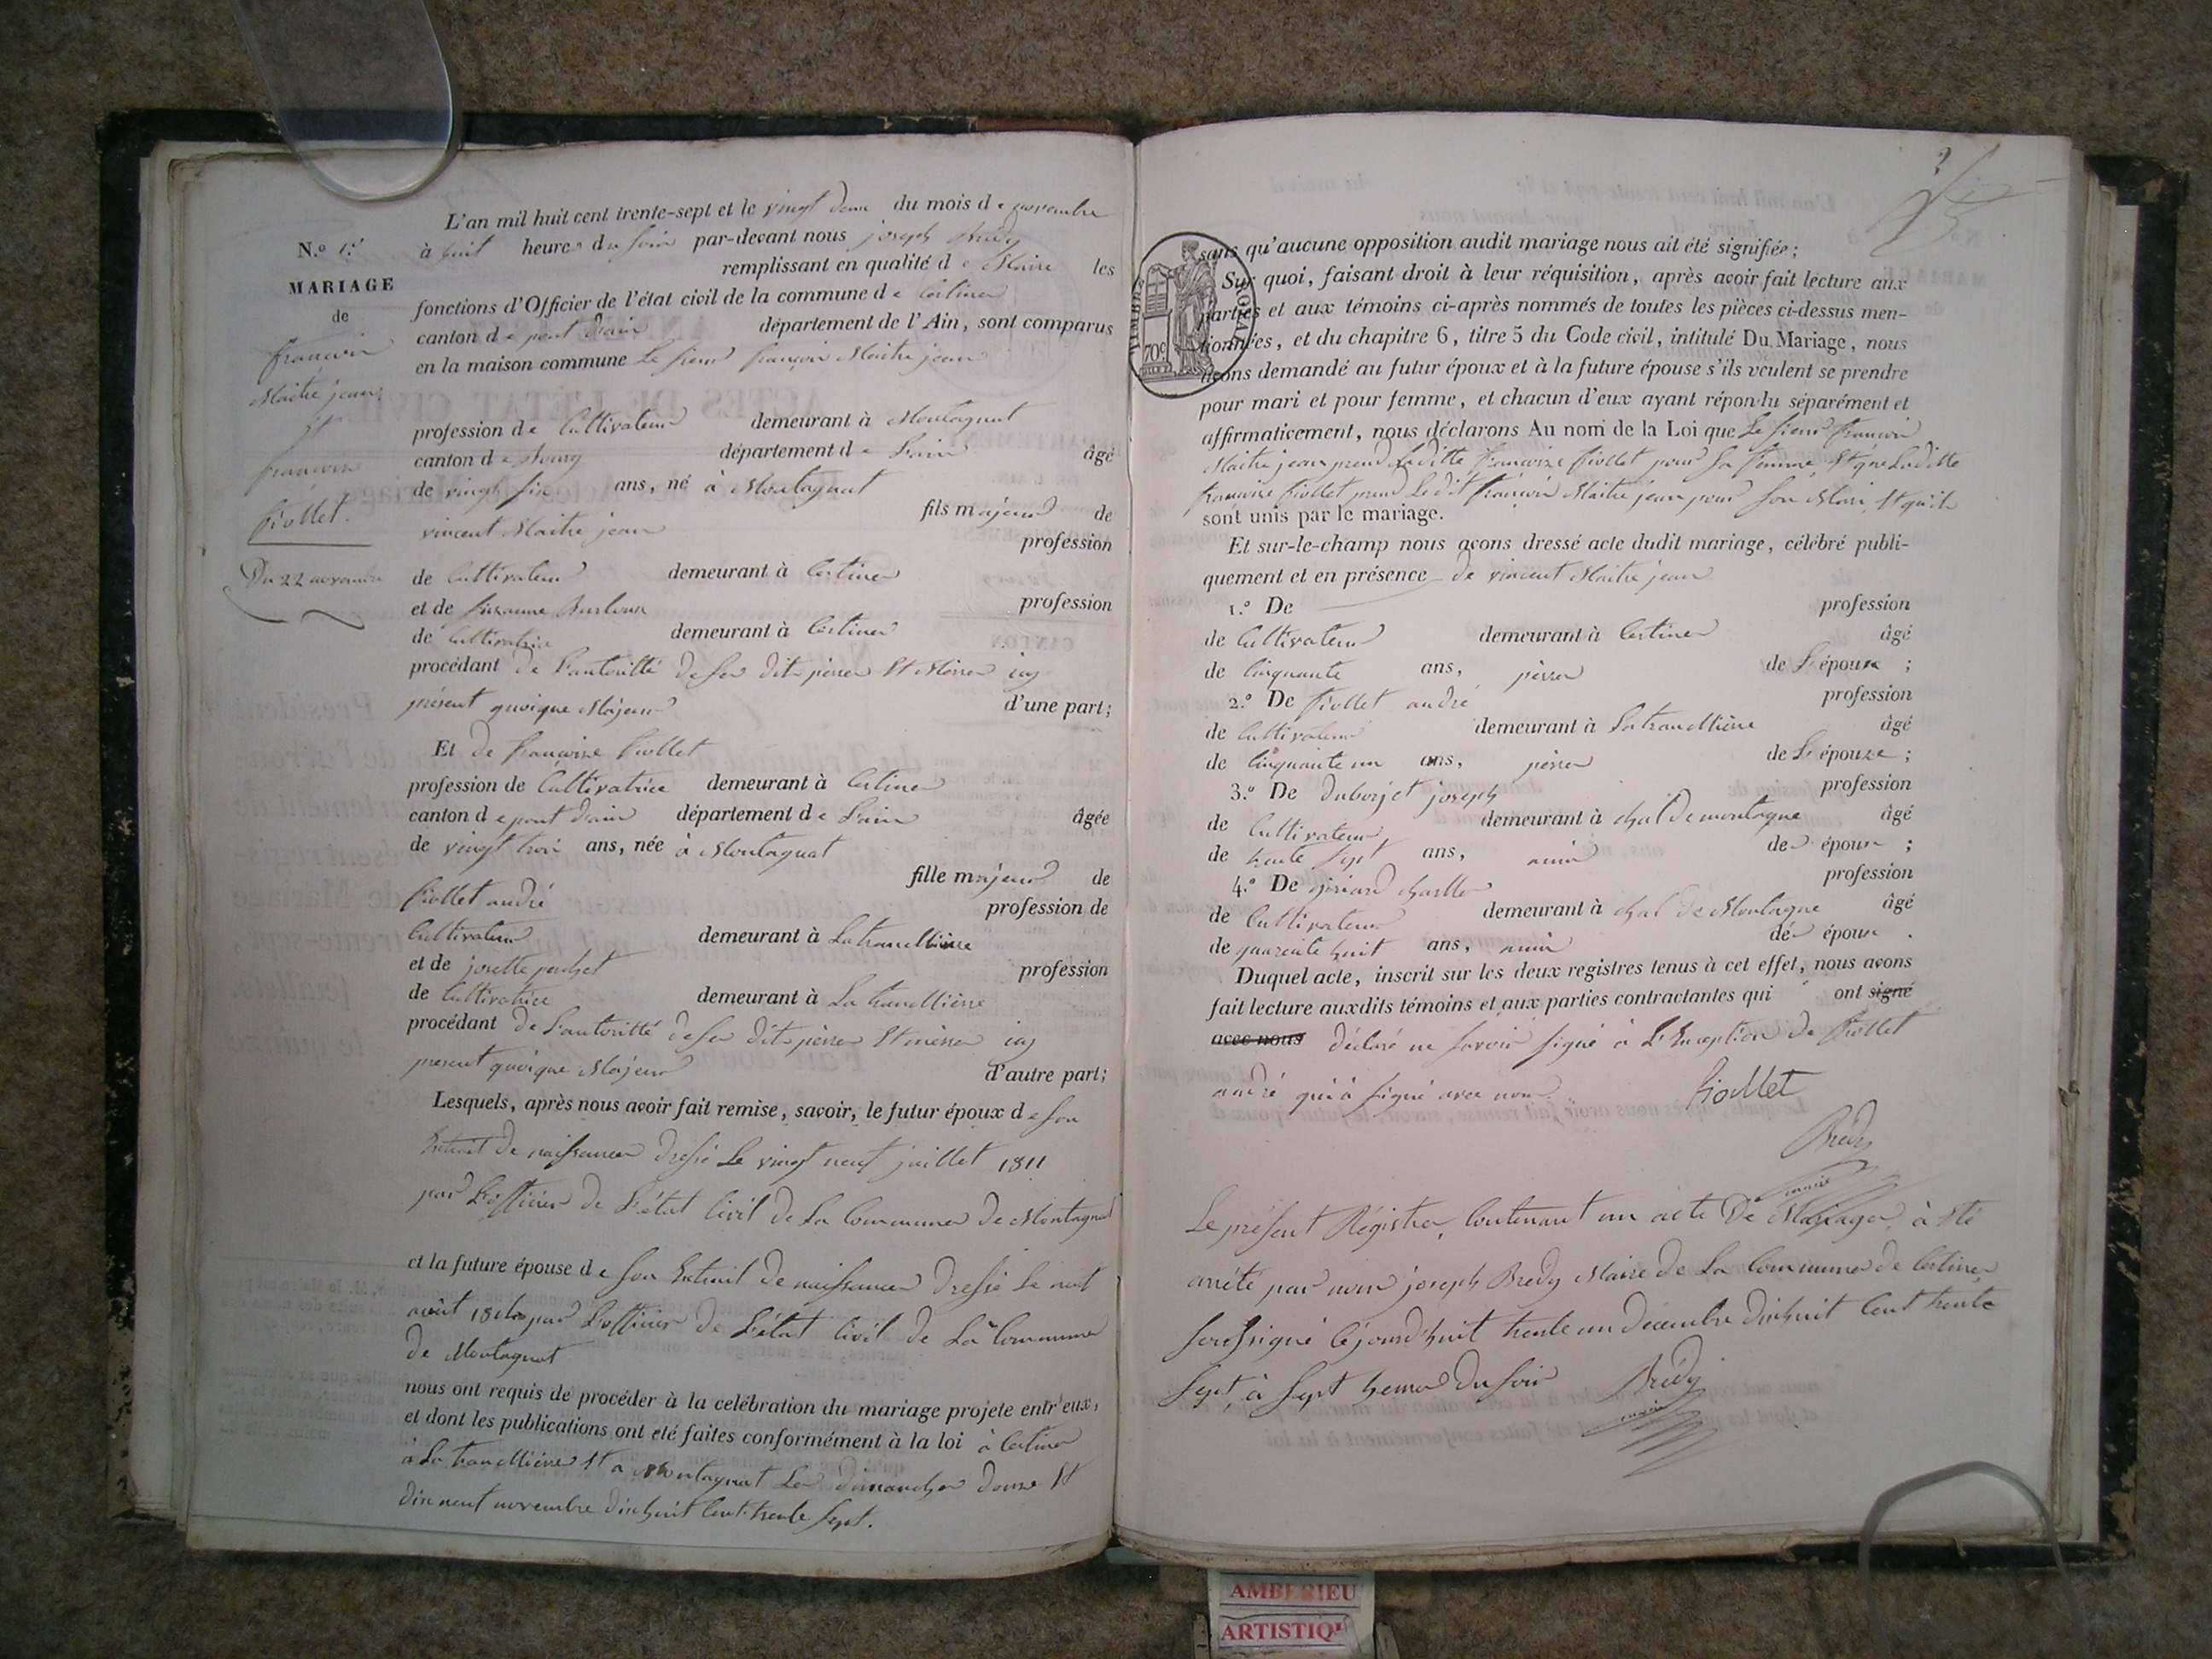 L'an mil huit cent trente-sept et le vingt deux du mois de novembre
N.º 1.er
à huit heures du soir par-devant nous joseph Brédy
MARIAGE
remplissant en qualité de Maire les
de
fonctions d'Officier de l'état civil de la commune de Certines
canton de pont d'ain département de l'Ain, sont comparus
françois
en la maison commune Le sieur françois Maitre jean
Maitre jean
Et
profession de Cultivateur demeurant à Montagnat
françoise
canton de Bourg département de L'ain âgé
piollet.
de vingt six ans, né à Montagnat
fils majeur de
vincent Maitre jean
profession
Du 22 novembre
de Cultivateur demeurant à Certines
et de Suzanne profession
de Cultivatrice demeurant à Certines
procédant de L'autorité de ses dits pères Et Mères icy
présent quoique Majeur d'une part;
Et de françoise piollet
profession de Cultivatrice demeurant à Certines
canton de pont d'ain département de L'ain âgée
de vingt trois ans, née à Montagnat
fille majeur de
piollet andré profession de
Cultivateur demeurant à La tranclliere
et de josette profession
de Cultivatrice demeurant à La tranclliere
procédant de L'autoritté de ses dits pères Et mères icy
present quoique Majeur d'autre part;
Lesquels, après nous avoir fait remise, savoir, le futur époux de son
Extrait de naissance dressé Le vingt neuf juillet 1811
par L'officier de L'état Civil de La Commune de Montagnat
et la future épouse de son Extrait de naissance dressé Le
août par L'officier de L'état Civil de La Commune
de Montagnat
nous ont requis de procéder à la celébration du mariage projeté entr'eux,
et dont les publications ont été faites conformément à la loi à Certines
à La tranclliere Et a Montagnat Les dimanches douze Et
dix neuf novembre dix huit Cent trente Sept.
sans qu'aucune opposition audit mariage nous ait été signifiée;
Sur quoi, faisant droit à leur réquisition, après avoir fait lecture aux
parties et aux témoins ci-après nommés de toutes les pièces ci-dessus men-
tionnées, et du chapitre 6, titre 5 du Code civil, intitulé Du Mariage, nous
avons demandé au futur époux et à la future épouse s'ils veulent se prendre
pour mari et pour femme, et chacun d'eux ayant répondu séparément et
affirmativement, nous déclarons Au nom de la Loi que Le sieur françois
Maitre jean prend Laditte françoise piollet pour Sa femme Et que Laditte
françoise piollet prend Ledit françois Maitre jean pour Son Mari, Et qu'ils
sont unis par le mariage.
Et sur-le-champ nous avons dressé acte dudit mariage, célébré publi-
quement et en présence de vincent Maitre jean
1.º De profession
de Cultivateur demeurant à Certines âgé
de Cinquante ans, père de L'époux ;
2.º De piollet andré profession
de Cultivateur demeurant à La tranclliere âgé
de Cinquante un ans, père de L'épouze ;
3.º De Duborjet joseph profession
de Cultivateur demeurant à chal de montagne âgé
de trente Sept ans, ami des époux ;
4.º De charlles profession
de Cultivateur demeurant à chal de Montagne âgé
de quarente huit ans, ami des époux .
Duquel acte, inscrit sur les deux registres tenus à cet effet, nous avons
fait lecture auxdits témoins et aux parties contractantes qui ont signé
avec nous déclaré ne savoir signé à L'Exception de piollet
andré qui à Signé avec nous. piollet
Brédy
maire
Le présent Régistre, Contenant un acte De Mariage, à Eté
arrêté par nous joseph Brédy Maire de La Commune de Certines
Soussigné Cejourd'huit trente un décembre dixhuit Cent trente
Sept, à Sept heures Du Soir Brédy
maire
TIMBRE ROYAL
70c
AMBERIEU
ARTISTIQ